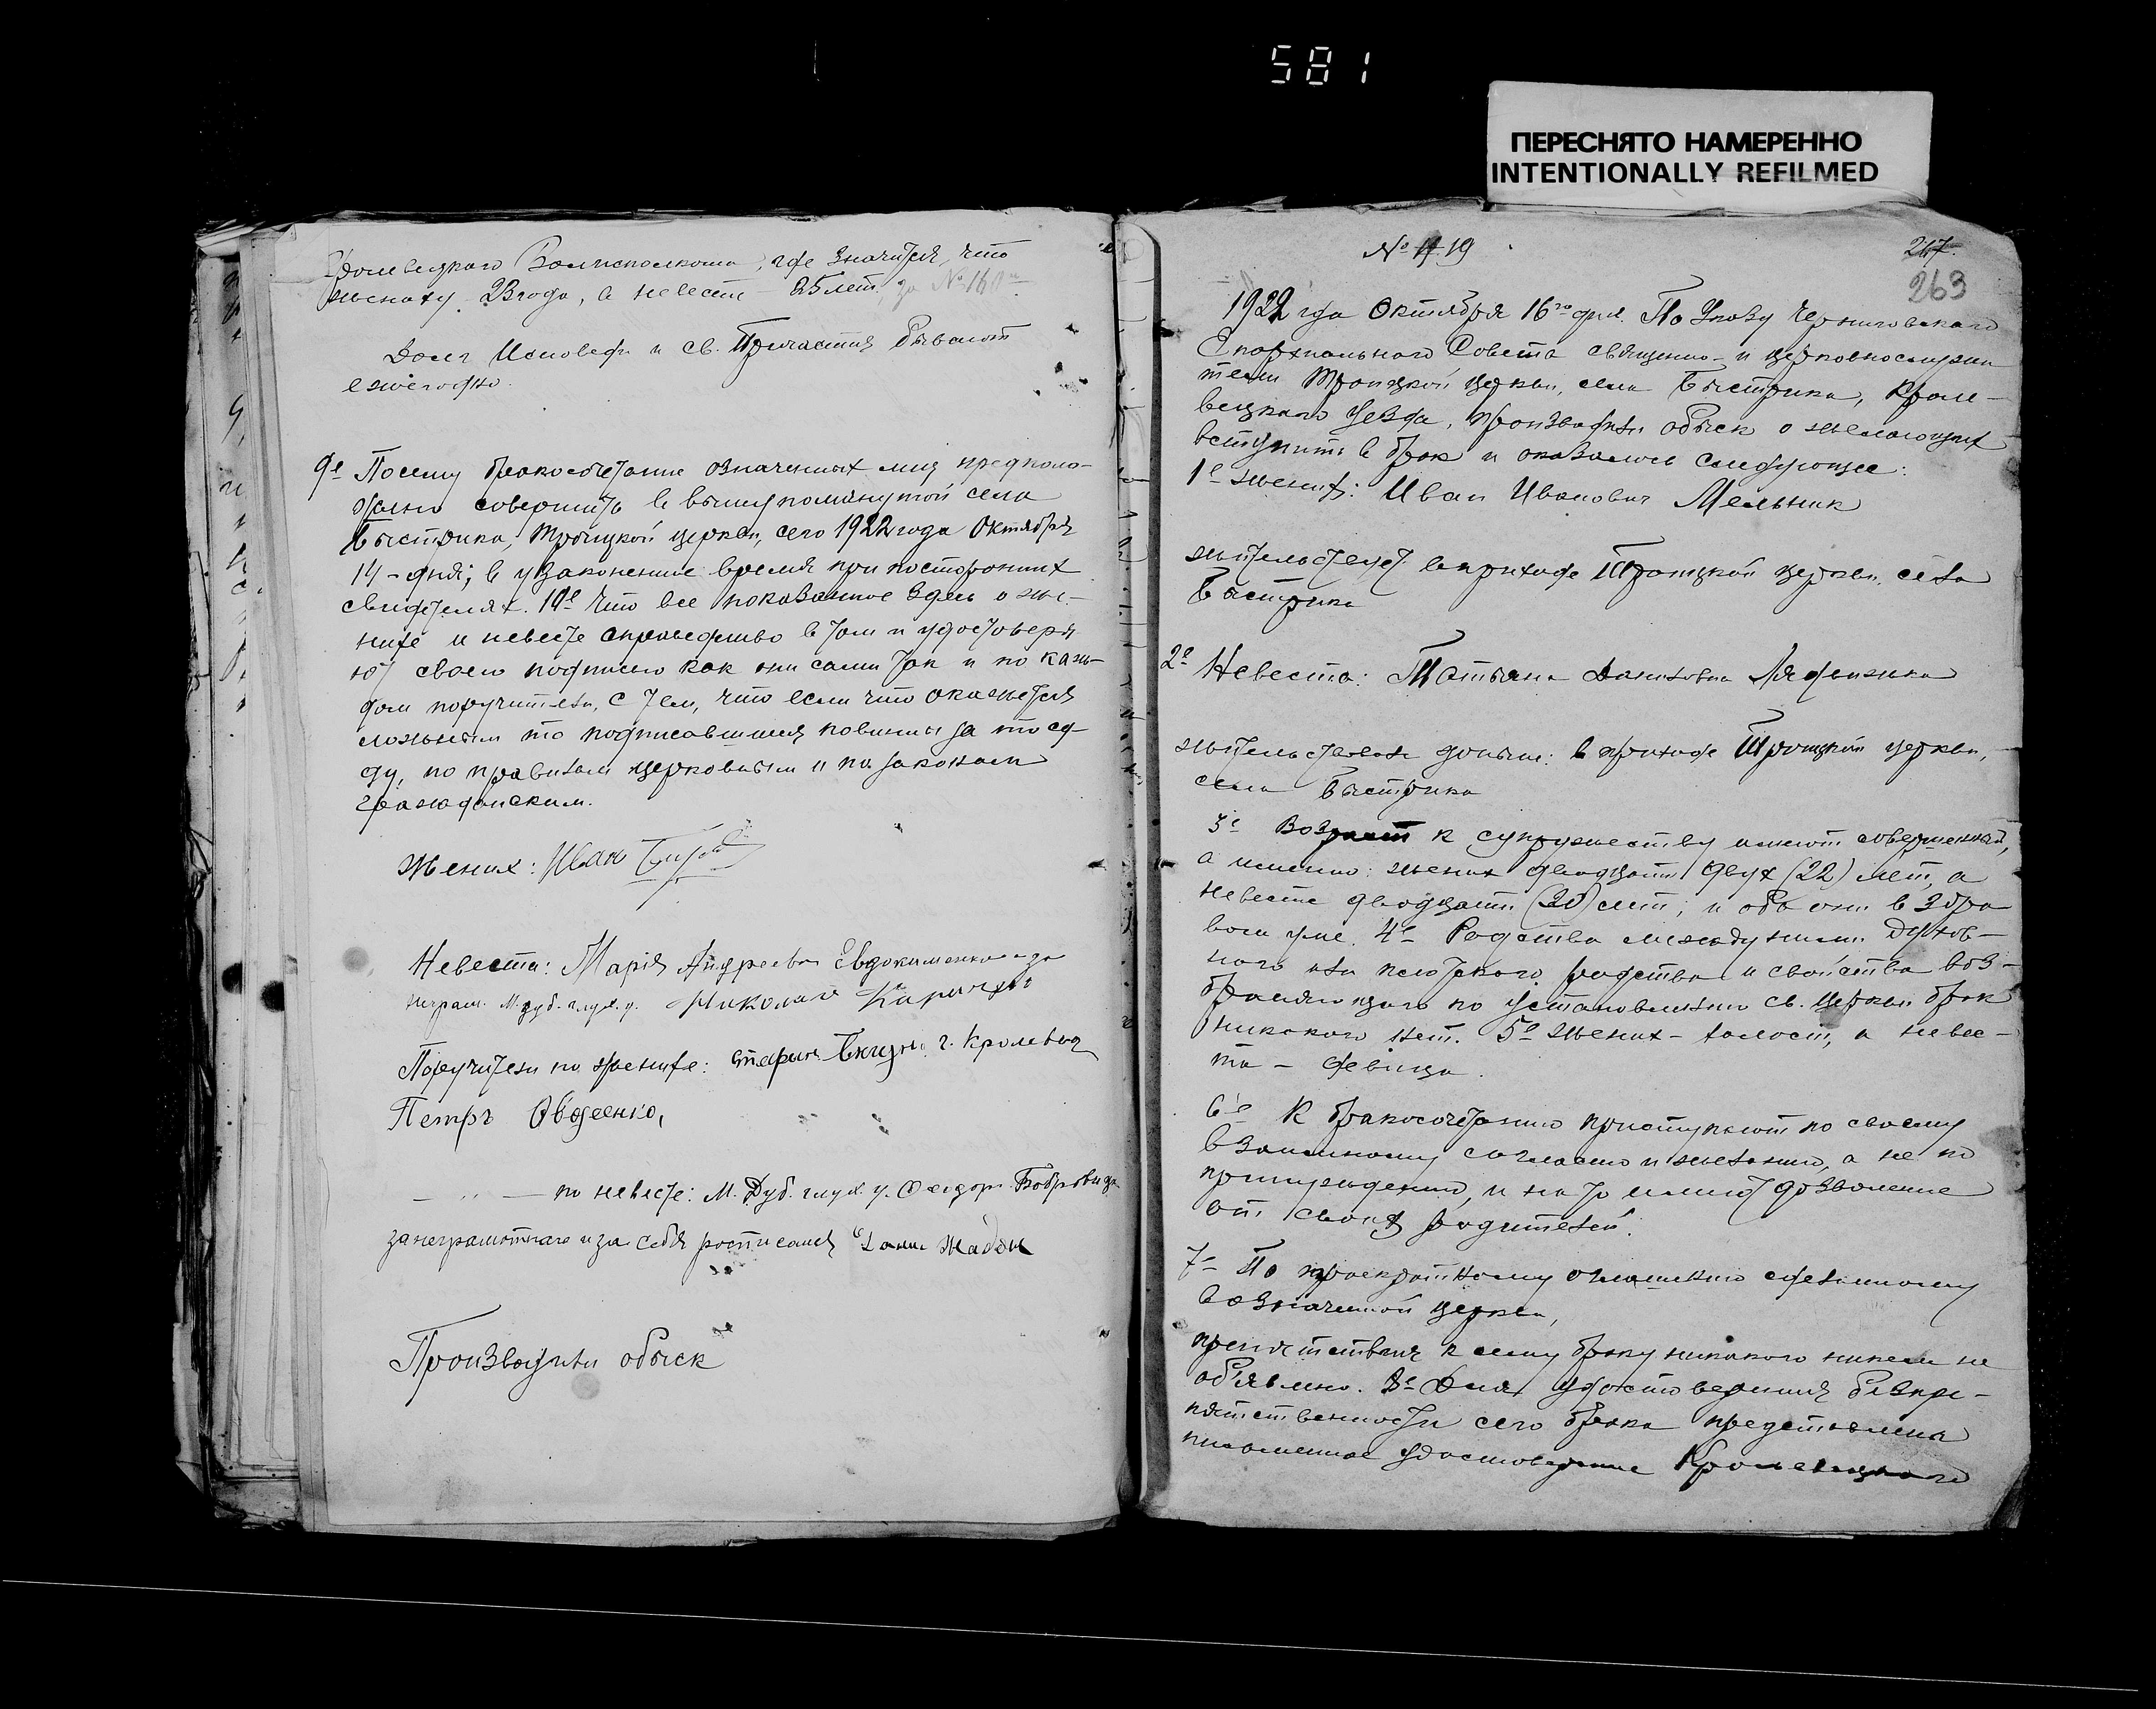 581
ПЕРЕСНЯТО НАМЕРЕННО
INTENTIONALLY REFILMED
Кролевецкаго Волисполкома, где значится, что
жениху 23 года, а невесте 25 лет, за № 161
Долг Исповеди и св. Причастия бывают
ежегодно.
9е Посему бракосочетание означенных лиц предполо-
жено совершить в вышеупомянутой села
Быстрика, Троицкой церкви, сего 1922 года Октября
14 - дня; в узаконенное время при посторонних
свидетелях. 10е Что все показанное здесь о же-
нихе и невесте справедливо в том и удостоверя-
ют своею подписью как они сами так и по каж-
дом поручители, с тем, что если что окажется
ложным то подписавшиеся повинны за то су-
ду, по правилам церковным и по законам
гражданским.
Жених: Иван
Невеста: Марія Андреевна Евдокименкова за
неграм. М. Дуб. глух. у. Николай
Поручители по женихе: г. Кролевца
Петръ Овдеенко,
— " — по невесте: М. Дуб. глух. у. Федор Бобровица
за неграмотнаго и за себя росписался Жадан
Производили обыск
№ 11 19
267
263
1922 года Октября 16го дня. По Указу Черниговскаго
Епархиального Совета священно- и церковнослужи
тели Троицкой церкви, села Быстрика, Кроле-
вецкаго уезда, производили обыск о желающих
вступить в брак и оказалось следующее:
1е жених: Иван Иванович Мельник
жительствует в приходе Троицкой церкви, села
Быстрика
2е Невеста: Татьяна Даниловна
жительствовала доныне: в приходе Троицкой церкви,
села Быстрика
3е Возраст к супружеству имеют совершенный,
а именно: жених двадцати двух (22) лет, а
невеста двадцати (20) лет, и оба они в здра
вом уме. 4е Родства между ними духов-
ного или плотского родства и свойства воз-
браняющаго по установлению св. Церкви брак
никакого нет. 5е жених - холост, а невес-
та - девица.
6е К бракосочетанию приступают по своему
взаимному согласию и желанию, а не по
принуждению, и на то имеют дозволение
от своих родителей.
7е По троекратному оглашению сделанному
в означенной церкви,
препятствия к сему браку никакого никем не
объявлено. 8е Для удостоверения безпре-
пятственности сего брака представлена
письменное удостоверение Кролевецкаго